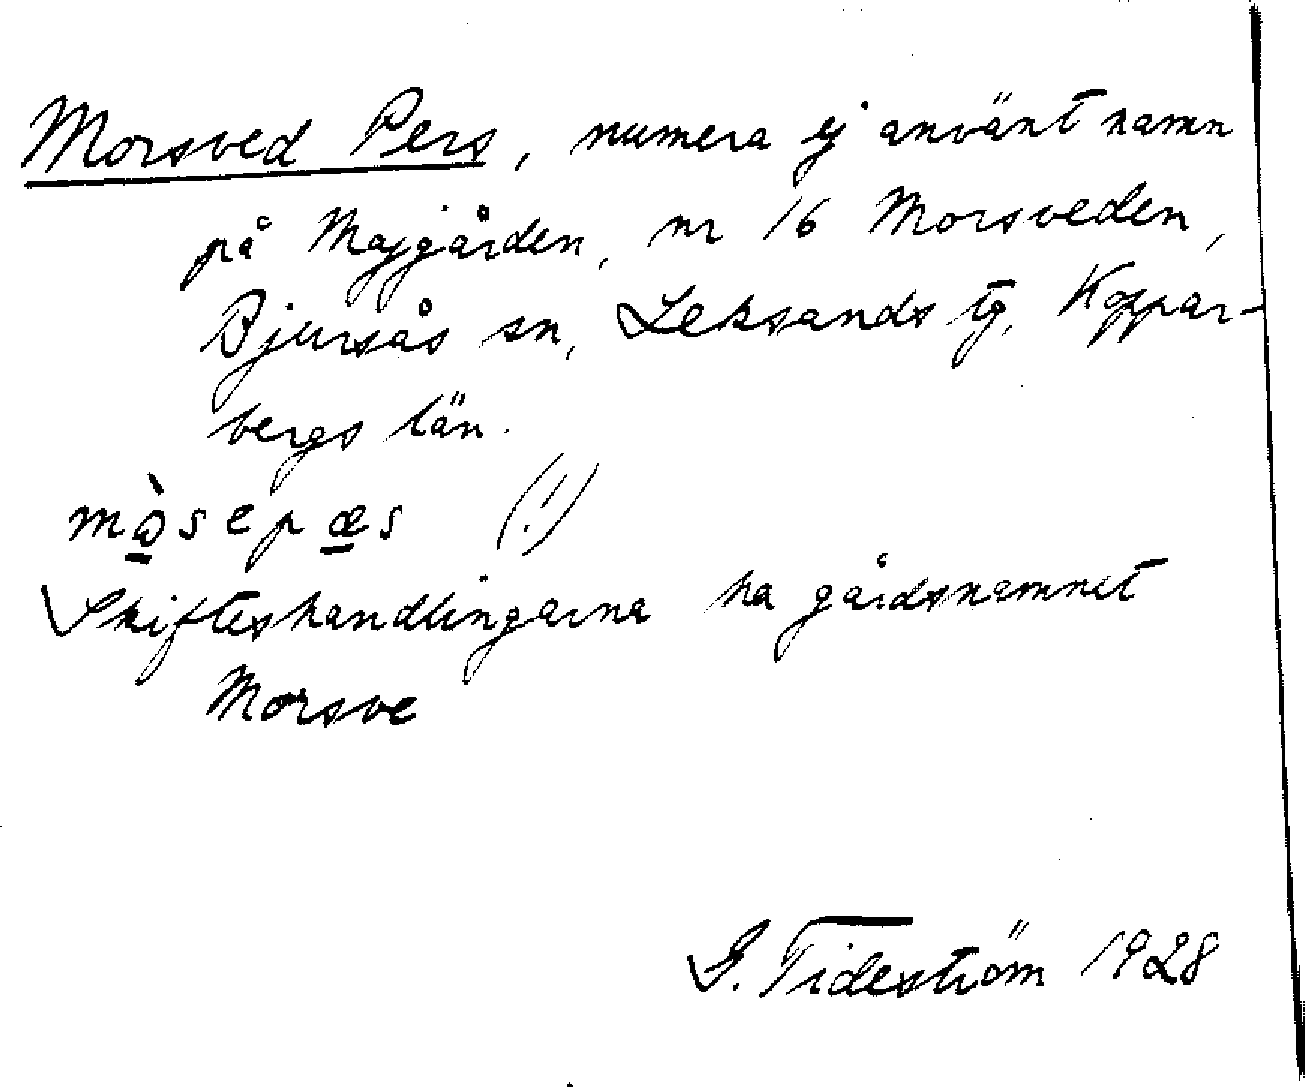 Morsved Pers, numera ej använt namn
på Majgården, nr 16 Morsveden,
Bjursås sn, Leksands tg, Koppar-
bergs län.
mə̀sepæs (!)
Skifteshandlingarna ha gårdsnamnet
Morsve
G. Tideström 1928